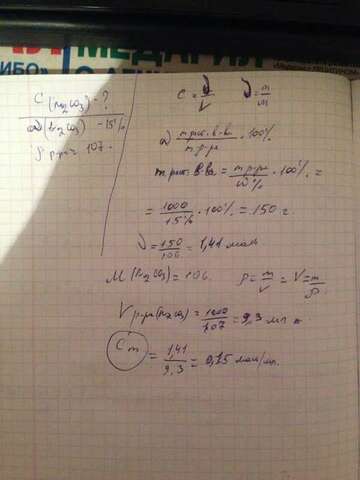 МЕДАРИЯ
ИБО»
C (Na2CO3) - ?
ω(Na2CO3) - 15%
ρ р-ра = 107 -
C = ν/V ν = m/M
ω m рас. в-ва / m р-ра · 100%
m рас. в-ва = m р-ра / ω% · 100% =
= 1000 / 15% · 100% = 150 г.
ν = 150/106 = 1,41 моль
M (Na2CO3) = 106
ρ = m/V = V = m/ρ
V р-ра (Na2CO3) = 1000/107 = 9,3 мл
Cm = 1,41/9,3 = 0,15 моль/мл.